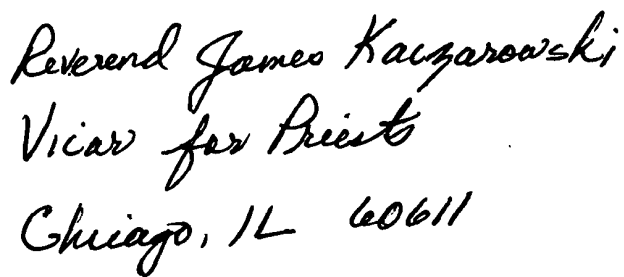 Reverend James Kaczarowski
Vicar for Priests
Chicago, IL 60611